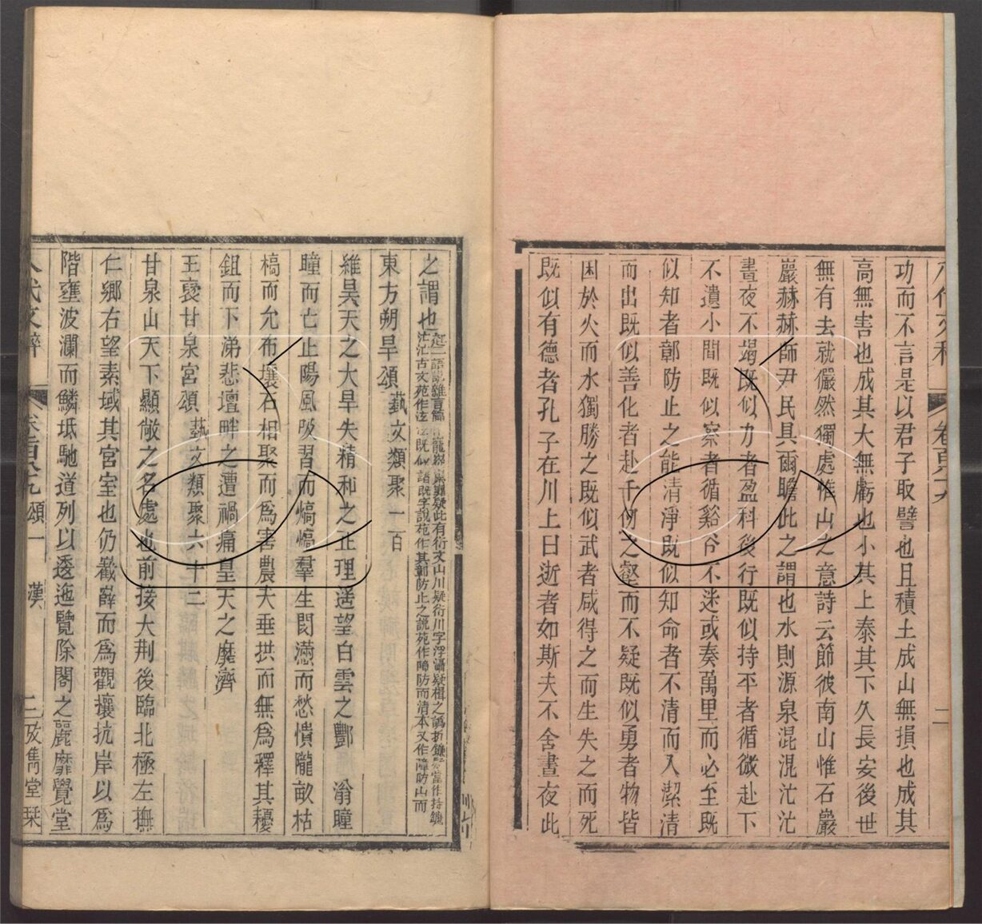 功而不言是以君子取譬也且積土成山無損也成其
高無害也成其大無虧也小其上泰其下久長安後世
無有去就儼然獨處惟山之意詩云節彼南山惟石巖
巖赫赫師尹民具爾瞻此之謂也水則源泉混混沄沄
晝夜不竭既似力者盈科後行既似持平者循微赴下
不遺小間既似察者循谿谷不迷或奏萬里而必至既
似知者鄣防止之能清淨既似知命者不清而入潔清
而出既似善化者赴千仞之壑而不疑既似勇者物皆
困於火而水獨勝之既似武者咸得之而生失之而死
既似有德者孔子在川上曰逝者如斯夫不舍晝夜此
之謂也
疑此有衍文山川疑衍川字浮灄疑楫之譌折
沄沄古文苑作
既似
說苑作其鄣防止之說苑作障防而清本又作障防山而
東方朔旱頌 藝文類聚一百
維昊天之大旱失精和之正理遥望白雲之酆 滃曈
曈而亡止陽風吸習而熇熇羣生閔懣而愁憒隴畝枯
槁而允布壤石相聚而爲害農夫垂拱而無爲釋其耰
鉏而下涕悲壇畔之遭禍痛皇天之靡濟
王褒甘泉宮頌 藝文類聚六十二
甘泉山天下顯敞之名處也前接大荆後臨北極左撫
仁鄉右望素域其宮室也仍嶻嶭而爲觀攘抗岸以爲
階壅波瀾而鱗坻馳道列以透迤覽除閣之麗靡覺堂
八代文粹 頌一 漢 二 攷雋堂栞